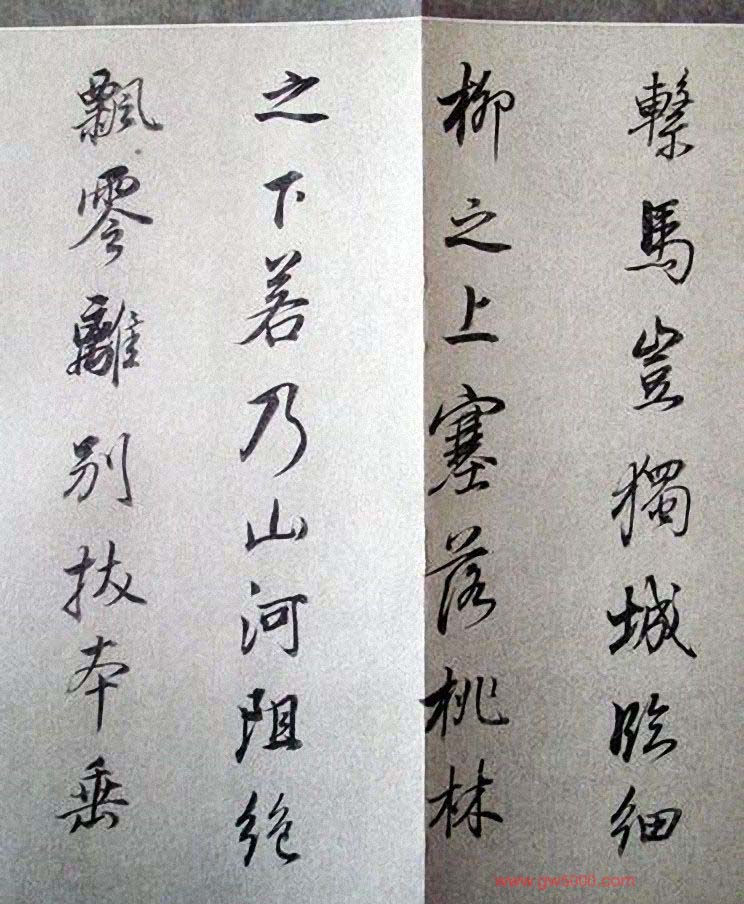 繫馬豈獨城臨細
柳之上塞落桃林
之下若乃山河阻絕
飄零離別拔本垂
www.gw5900.com